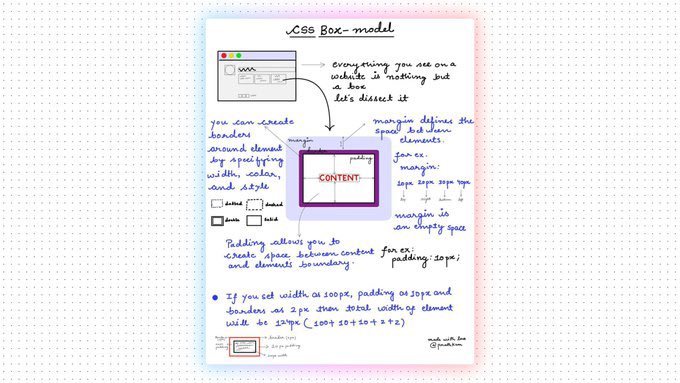 CSS Box-model
everything you see on a
website is nothing but
a box
let's dissect it
you can create
borders
around element
by specifying
width, color,
and style
dotted
dashed
double
solid
margin
border
padding
CONTENT
margin defines the
space between
elements.
for ex.
margin:
10px 20px 30px 40px
top right bottom left
margin is
an empty space
Padding allows you to
create space between content
and elements boundary.
for ex:
padding: 10px;
If you set width as 100px, padding as 10px and
borders as 2px then total width of element
will be 124px (100+10+10+2+2)
border (2px)
padding
made with love